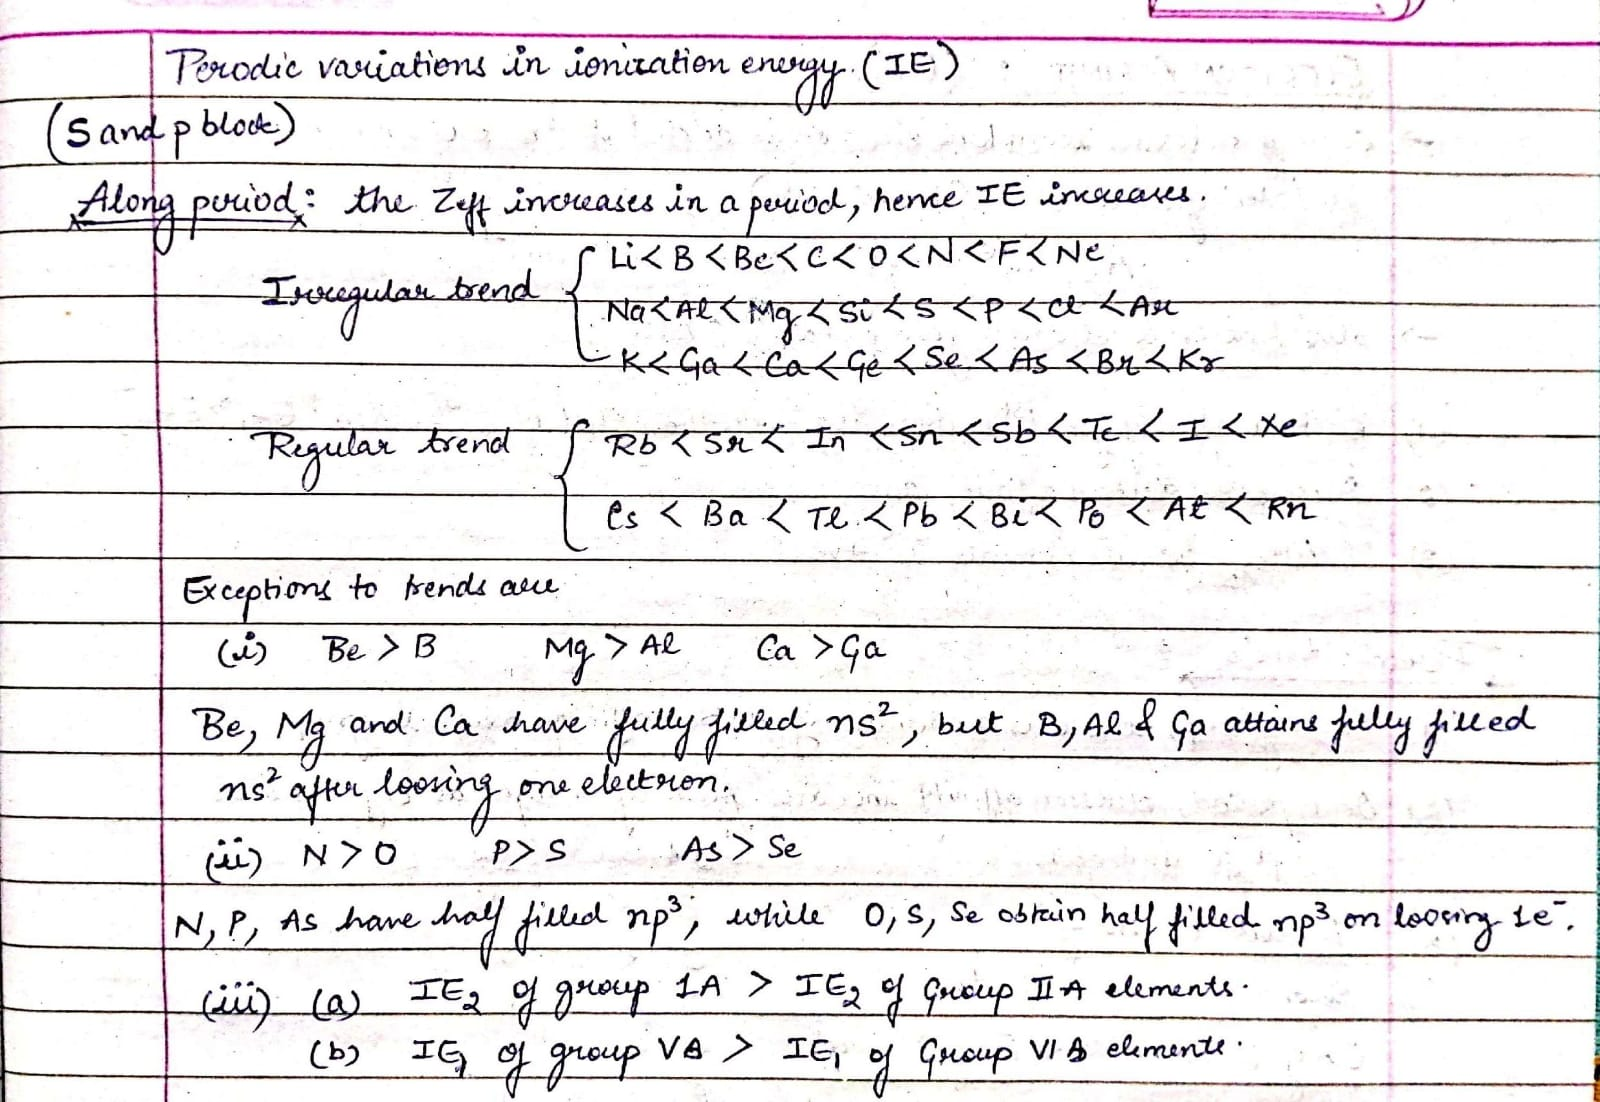 Perodic variations in ionization energy. (IE)
(S and p block)
Along period: the Zeff increases in a period, hence IE increases.
Irregular trend { Li < B < Be < C < O < N < F < Ne
Na < Al < Mg < Si < S < P < Cl < Ar
K < Ga < Ca < Ge < Se < As < Br < Kr
Regular trend { Rb < Sr < In < Sn < Sb < Te < I < Xe
Cs < Ba < Tl < Pb < Bi < Po < At < Rn
Exceptions to trends are
(i) Be > B Mg > Al Ca > Ga
Be, Mg and Ca have fully filled ns², but B, Al & Ga attains fully filled
ns² after loosing one electron.
(ii) N > O P > S As > Se
N, P, As have half filled np³, while O, S, Se obtain half filled np³ on loosing 1e⁻.
(iii) (a) IE₂ of group IA > IE₂ of Group IIA elements.
(b) IE₁ of group VA > IE₁ of Group VIA elements.